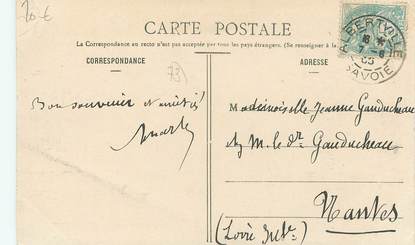 20 €
CARTE POSTALE
La Correspondance au recto n'est pas acceptée par tous les pays étrangers. (Se renseigner à la
CORRESPONDANCE
ADRESSE
73
ALBERTVILLE
7 - 8
05
SAVOIE
Bon souvenir et amitiés
Mademoiselle Jeanne Gauducheau
chez M. le dr Gauducheau
Nantes
(Loire Infre)